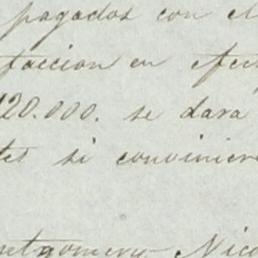 pagados con el
faccion en efec
120.000. se dara
tes si convinier
ntgomery Nico